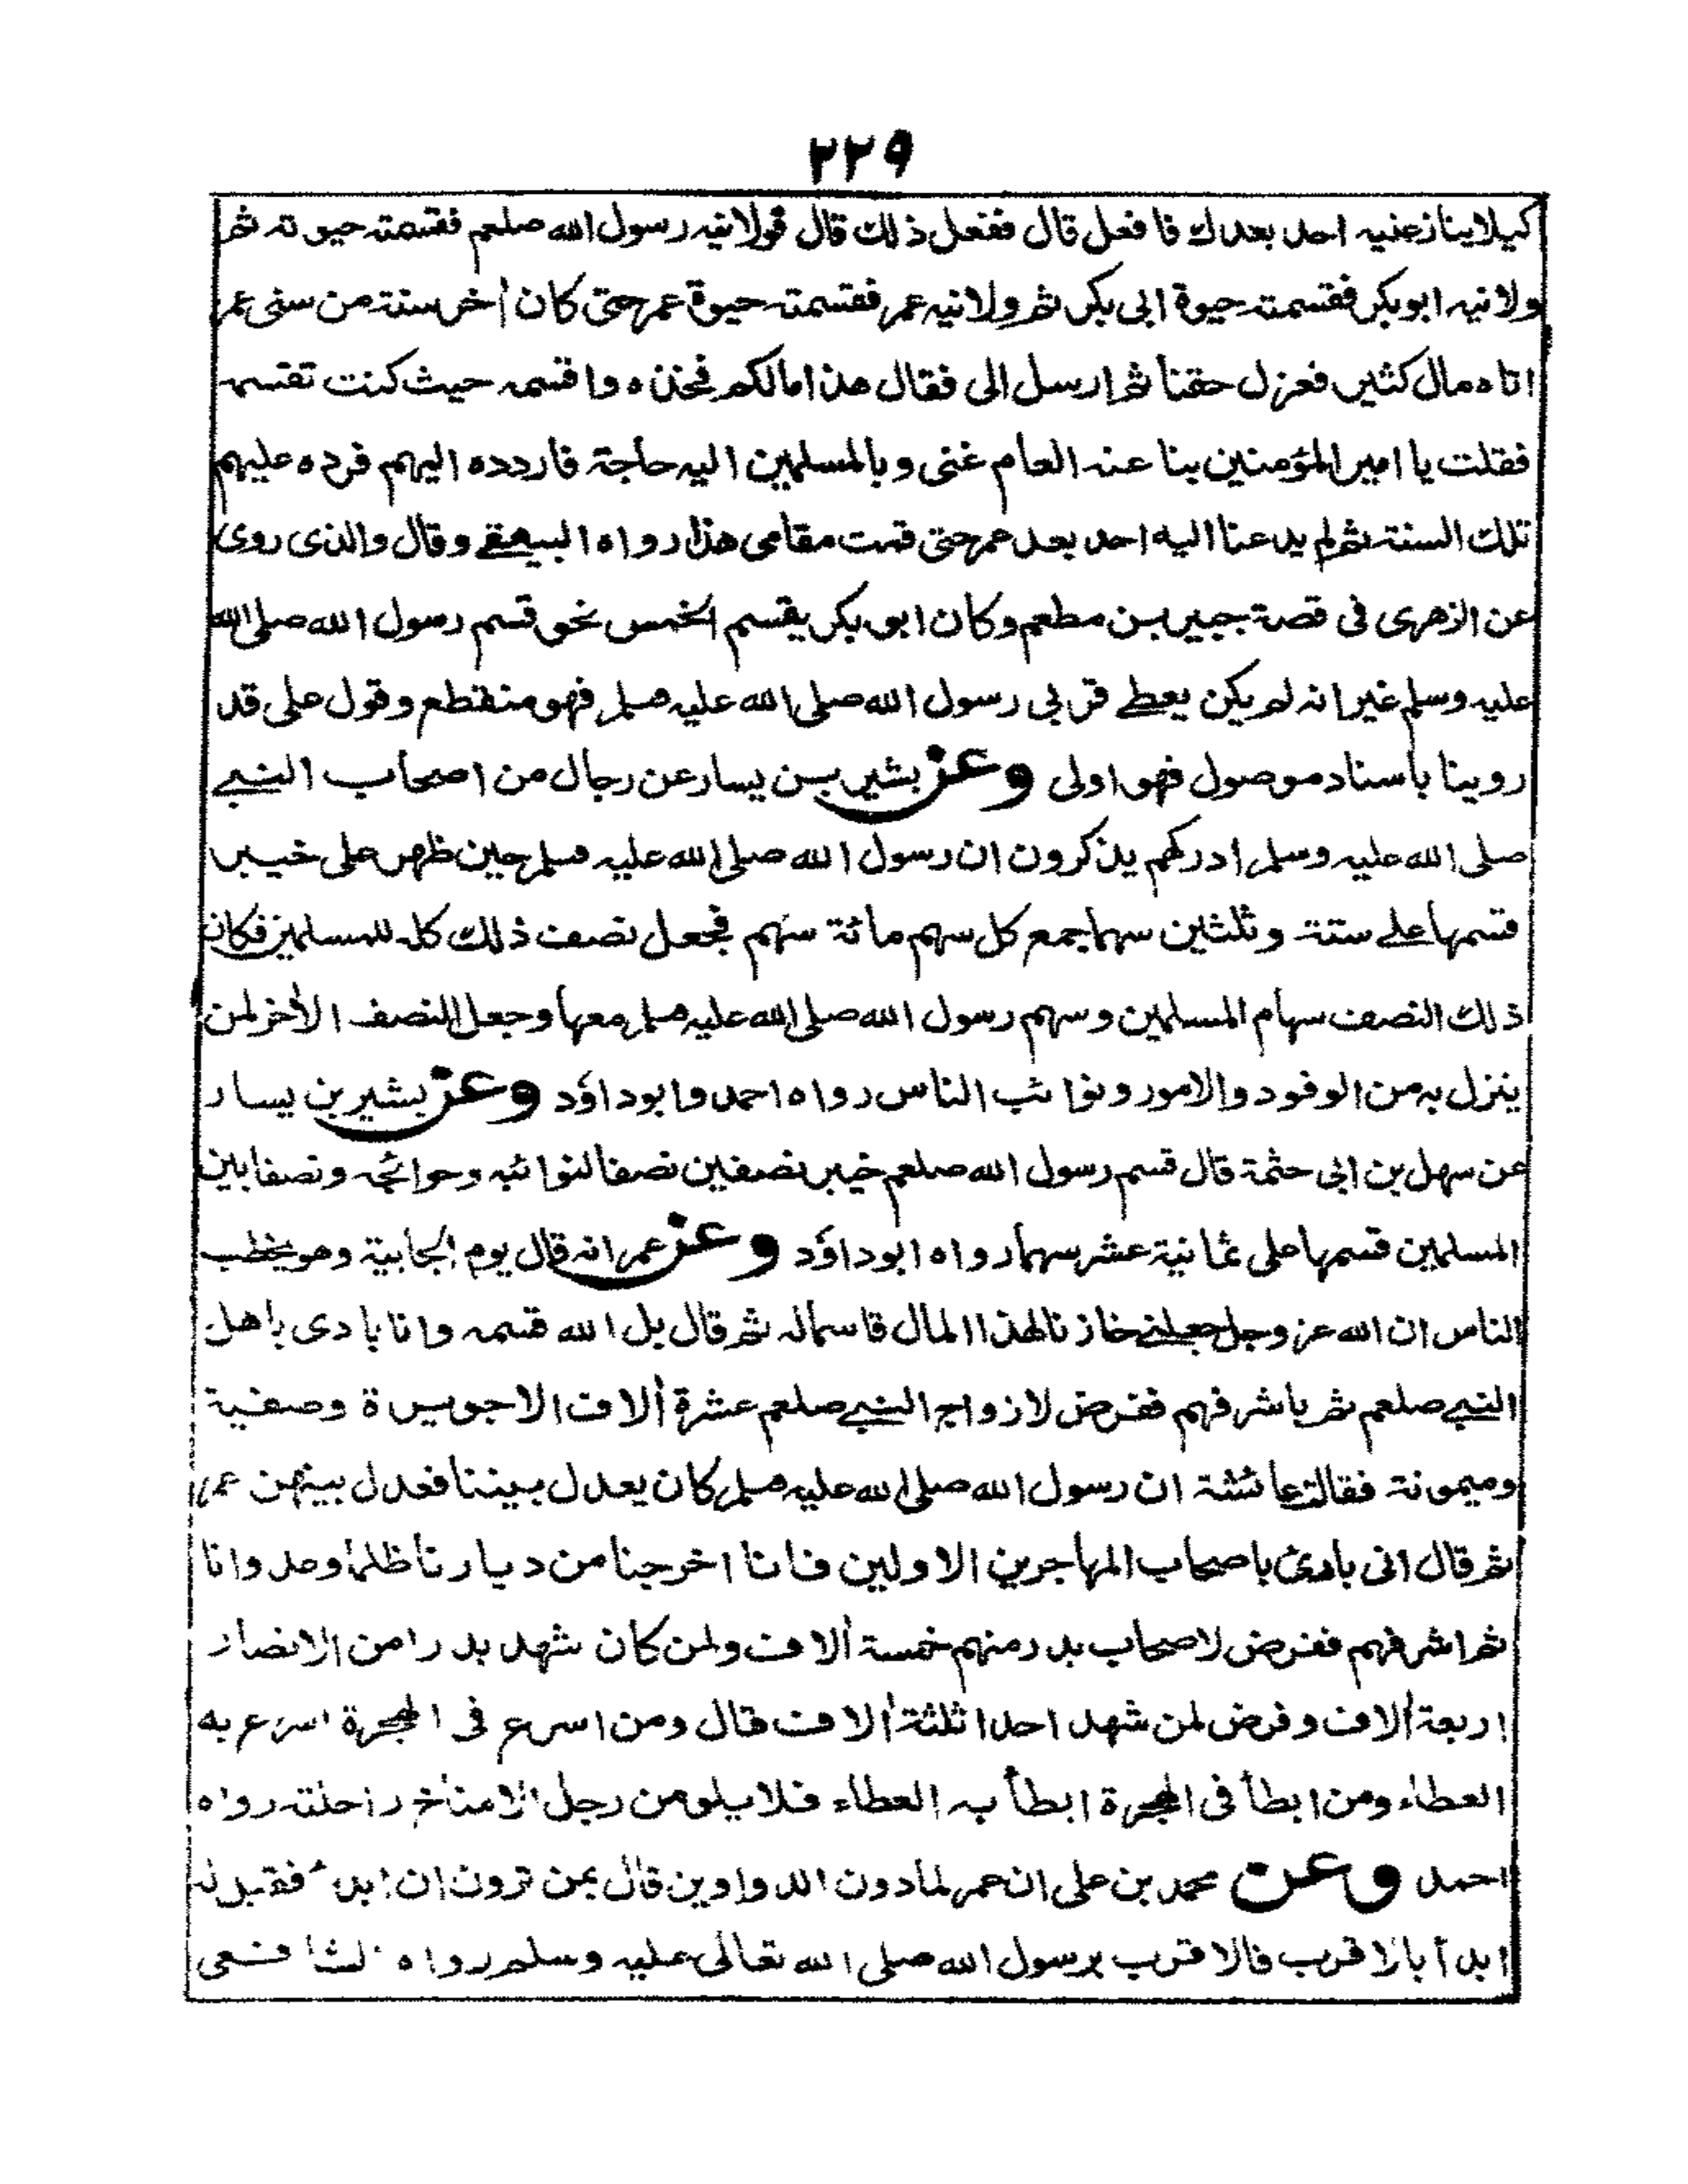 ٢٢٩
كيلا ينازعنيه احد بعدك فافعل قال ففعل ذلك قال فولانيه رسول الله صلعم فقسمته حيوته ثم
ولانيه ابوبكر فقسمته حيوة ابى بكر ثم ولانيه عمر فقسمته حيوة عمر حتى كان اٰخر سنة من سنى عمر
اتاه مال كثير فعزل حقنا ثم ارسل الى فقال هذا مالكم فخذه واقسمه حيث كنت تقسمه
فقلت يا امير المؤمنين بنا عنه العام غنى وبالمسلمين اليه حاجة فاردده اليهم فرده عليهم
تلك السنة ثم لم يدعنا اليه احد بعد عمر حتى قمت مقامى هذا رواه البيهقے وقال والذى روى
عن الزهرى فى قصة جبير بن مطعم وكان ابو بكر يقسم الخمس نحو قسم رسول الله صلى الله
عليه وسلم غير انه لم يكن يعطے قربى رسول الله صلى الله عليه وسلم فهو منقطع وقول على قد
روينا باسناد موصول فهو اولى وعن بشير بن يسار عن رجال من اصحاب النبے
صلى الله عليه وسلم ادركهم يذكرون ان رسول الله صلى الله عليه وسلم حين ظهر على خيبر
قسمها علے ستة وثلثين سهما جمع كل سهم مائة سهم فجعل نصف ذلك كله للمسلمين فكان
ذلك النصف سهام المسلمين وسهم رسول الله صلى الله عليه وسلم معها وجعل النصف الاٰخر لمن
ينزل به من الوفود والامور ونوائب الناس رواه احمد وابوداؤد وعن بشير بن يسار
عن سهل بن ابى حثمة قال قسم رسول الله صلعم خيبر نصفين نصفا لنوائبه وحوائجه ونصفا بين
المسلمين قسمها على ثمانية عشر سهما رواه ابوداؤد وعن عمر انه قال يوم الجابية وهو يخطب
الناس ان الله عز وجل جعلنے خازنا لهذا المال قاسماله ثم قال بل الله قسمه وانا بادى باهل
النبے صلعم ثم باشرفهم ففرض لازواج النبے صلعم عشرة اٰلاف الا جويرة وصفية
وميمونة فقالت عائشة ان رسول الله صلى الله عليه وسلم كان يعدل بيننا فعدل بينهن عمر
ثم قال انى بادئ باصحاب المهاجرين الاولين فانا اخرجنا من ديارنا ظلما وعدوانا
ثم اشرفهم ففرض لاصحاب بدر منهم خمسة اٰلاف ولمن كان شهد بدرا من الانصار
اربعة اٰلاف وفرض لمن شهد احدا ثلثة اٰلاف قال ومن اسرع فى الهجرة اسرع به
العطاء ومن ابطأ فى الهجرة ابطأ به العطاء فلا يلومن رجل الا مناخ راحلته رواه
احمد وعن محمد بن على ان عمر لمادون الدواوين قال بمن ترون ان ابدء فقيل له
ابدأ بالاقرب فالاقرب برسول الله صلى الله تعالى عليه وسلم رواه الشافعى